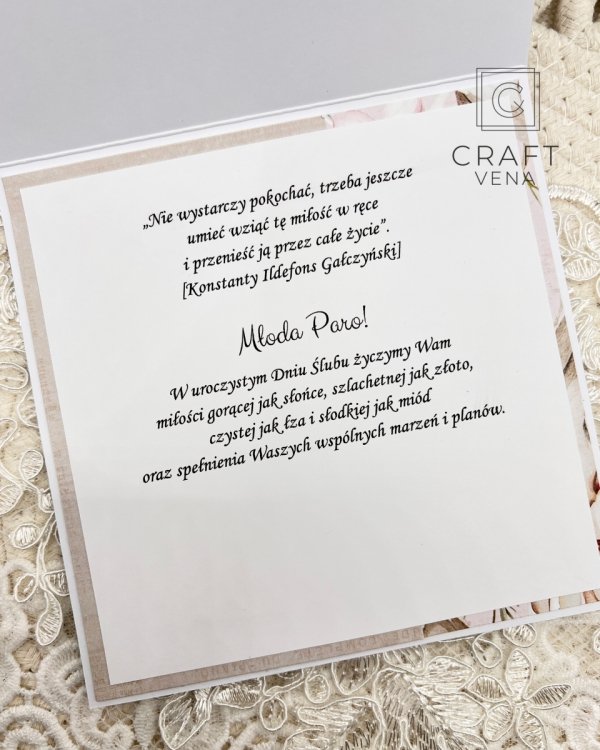 CRAFT
VENA
„Nie wystarczy pokochać, trzeba jeszcze
umieć wziąć tę miłość w ręce
i przenieść ją przez całe życie”.
[Konstanty Ildefons Gałczyński]
Młoda Paro!
W uroczystym Dniu Ślubu życzymy Wam
miłości gorącej jak słońce, szlachetnej jak złoto,
czystej jak łza i słodkiej jak miód
oraz spełnienia Waszych wspólnych marzeń i planów.